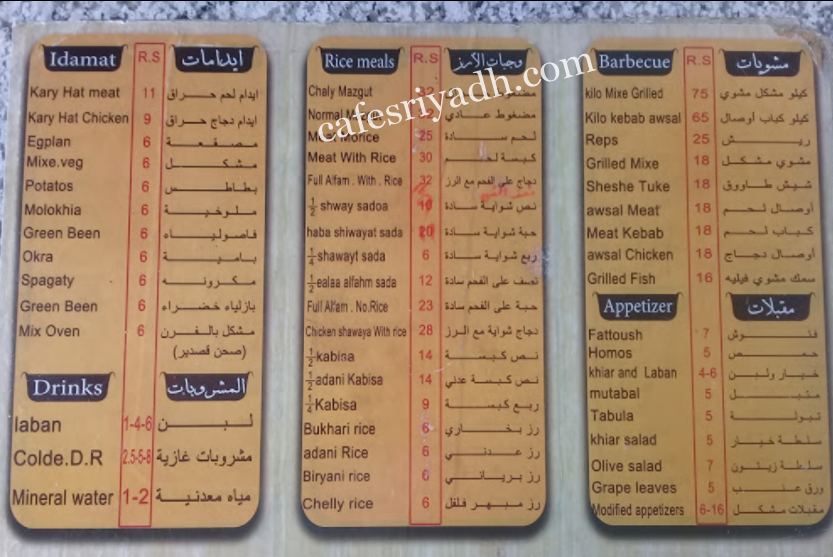 Idamat R.S ايدامات
Kary Hat meat 11 ايدام لحم حراق
Kary Hat Chicken 9 ايدام دجاج حراق
Egplan 6 مصقعة
Mixe.veg 6 مشكل
Potatos 6 بطاطس
Molokhia 6 ملوخية
Green Been 6 فاصولياء
Okra 6 بامية
Spagaty 6 مكرونه
Green Been 6 بازلياء خضراء
Mix Oven 6 مشكل بالفرن
(صحن قصدير)
Drinks المشروبات
laban 1-4-6 لبن
Colde.D.R 2.5-5-8 مشروبات غازية
Mineral water 1-2 مياه معدنية
Rice meals R.S وجبات الأرز
Chaly Mazgut 32 مضغوط
Normal Mazgut مضغوط عادي
Meat Morice 25 لحم سادة
Meat With Rice 30 كبسة لحم
Full Alfam . With . Rice 32 دجاج على الفحم مع الرز
1/2 shway sadoa نص شواية سادة
haba shiwayat sada 20 حبة شواية سادة
1/4 shawayt sada 6 ربع شواية سادة
1/2 ealaa alfahm sada 12 نصف على الفحم سادة
Full Alfam . No.Rice 23 حبة على الفحم سادة
Chicken shawaya With rice 28 دجاج شواية مع الرز
1/2 kabisa 14 نص كبسة
1/2 adani Kabisa 14 نص كبسة عدني
1/4 Kabisa 9 ربع كبسة
Bukhari rice 6 رز بخاري
adani Rice 6 رز عدني
Biryani rice 6 رز برياني
Chelly rice 6 رز مبهر فلفل
cafesriyadh.com
Barbecue R.S مشويات
kilo Mixe Grilled 75 كيلو مشكل مشوي
Kilo kebab awsal 65 كيلو كباب أوصال
Reps 25 ريش
Grilled Mixe 18 مشوي مشكل
Sheshe Tuke 18 شيش طاووق
awsal Meat 18 أوصال لحم
Meat Kebab 18 كباب لحم
awsal Chicken 18 أوصال دجاج
Grilled Fish 16 سمك مشوي فيليه
Appetizer مقبلات
Fattoush 7 فتوش
Homos 5 حمص
khiar and Laban 4-6 خيار ولبن
mutabal 5 متبل
Tabula 5 تبولة
khiar salad 5 سلطة خيار
Olive salad 7 سلطة زيتون
Grape leaves 5 ورق عنب
Modified appetizers 6-16 مقبلات مشكل